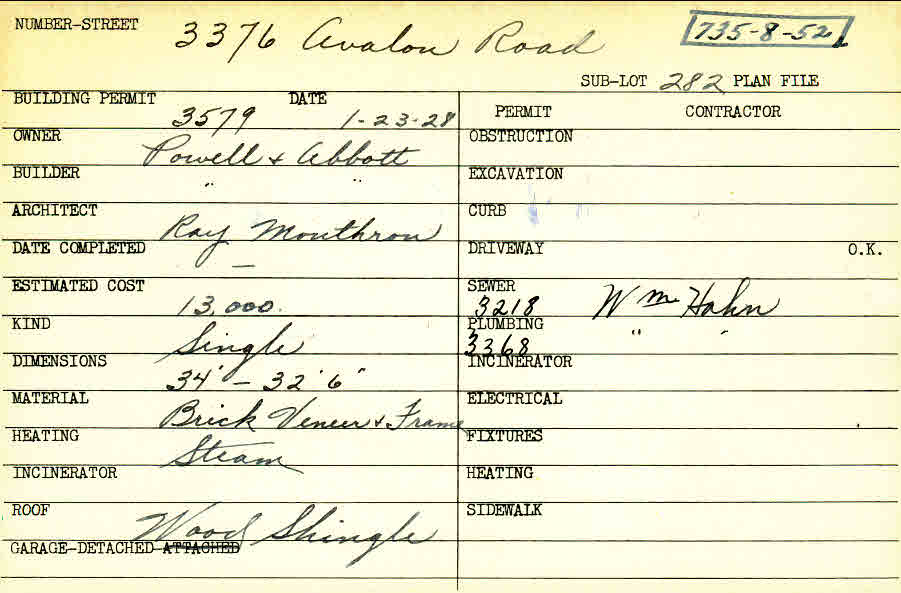 NUMBER-STREET 3376 Avalon Road 735-8-52
SUB-LOT 282 PLAN FILE
BUILDING PERMIT 3579 DATE 1-23-28
OWNER Powell & Abbott
BUILDER " "
ARCHITECT Ray Monthron
DATE COMPLETED —
ESTIMATED COST 13,000.
KIND Single
DIMENSIONS 34' — 32' 6"
MATERIAL Brick Veneer & Frame
HEATING Steam
INCINERATOR
ROOF Wood Shingle
GARAGE-DETACHED-ATTACHED
PERMIT CONTRACTOR
OBSTRUCTION
EXCAVATION
CURB
DRIVEWAY O.K.
SEWER 3218 Wm Hahn
PLUMBING 3368 " "
INCINERATOR
ELECTRICAL
FIXTURES
HEATING
SIDEWALK